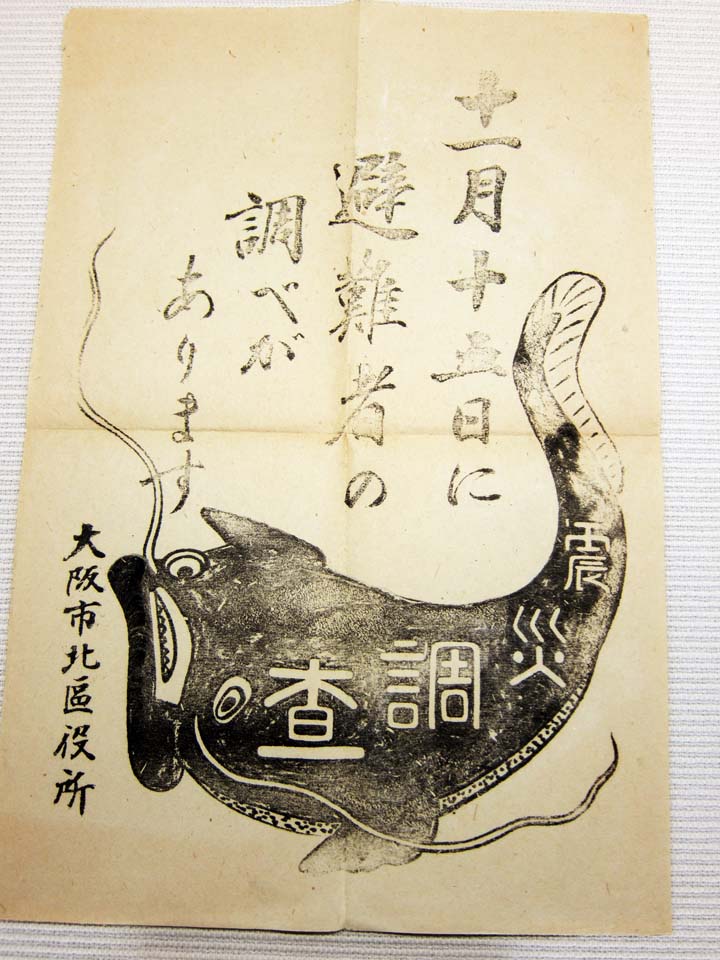 十一月十五日に
避難者の
調べが
あります
震災調査
大阪市北區役所